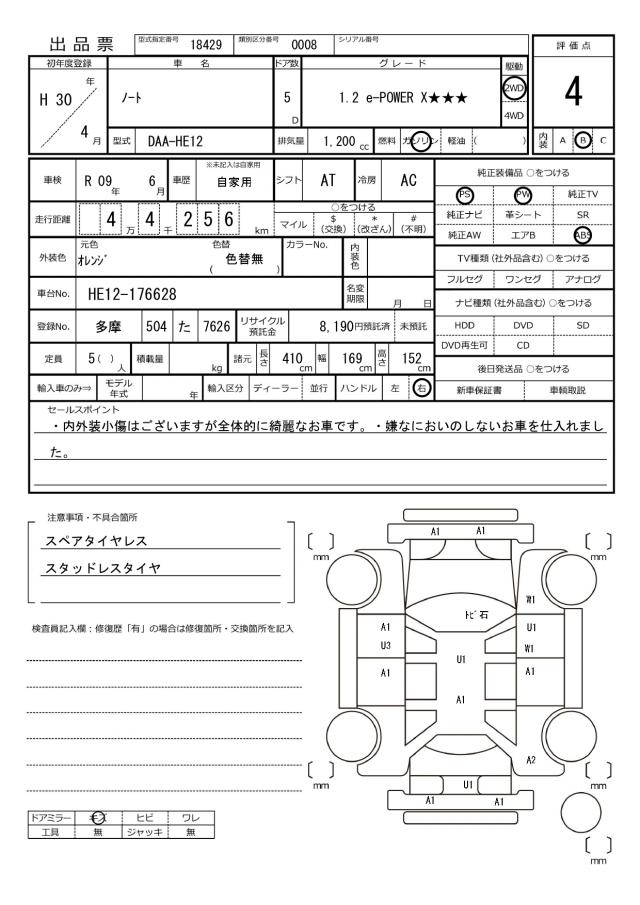 出品票 型式指定番号 18429 類別区分番号 0008 シリアル番号
初年度登録 車名 ドア数 グレード 駆動 評価点
H 30 年 4 月 ノート 5 D 1.2 e-POWER X★★★ 2WD 4WD 4
型式 DAA-HE12 排気量 1,200 cc 燃料 ガソリン 軽油 ( ) 内装 A B C
車検 R 09 年 6 月 車歴 ※未記入は自家用 自家用 シフト AT 冷房 AC
走行距離 4 万 4 千 2 5 6 km ○をつける マイル $ (交換) * (改ざん) # (不明)
外装色 元色 オレンジ 色替 ( 色替無 ) カラーNo. 内装色
車台No. HE12-176628 名変期限 月 日
登録No. 多摩 504 た 7626 リサイクル預託金 8,190円預託済 未預託
定員 5( ) 人 積載量 kg 諸元 長さ 410 cm 幅 169 cm 高さ 152 cm
輸入車のみ⇒ モデル年式 年 輸入区分 ディーラー 並行 ハンドル 左 右
純正装備品 ○をつける
PS PW 純正TV
純正ナビ 革シート SR
純正AW エアB ABS
TV種類(社外品含む)○をつける
フルセグ ワンセグ アナログ
ナビ種類(社外品含む)○をつける
HDD DVD SD
DVD再生可 CD
後日発送品 ○をつける
新車保証書 車輌取説
セールスポイント
・内外装小傷はございますが全体的に綺麗なお車です。・嫌なにおいのしないお車を仕入れまし
た。
注意事項・不具合箇所
スペアタイヤレス
スタッドレスタイヤ
検査員記入欄：修復歴「有」の場合は修復箇所・交換箇所を記入
ドアミラー キズ ヒビ ワレ
工具 無 ジャッキ 無
A1 A1
mm mm
W1
トビ石
A1 U1
U3 W1
U1
A1 A1
A1
A2
mm mm
U1
A1 A1
mm